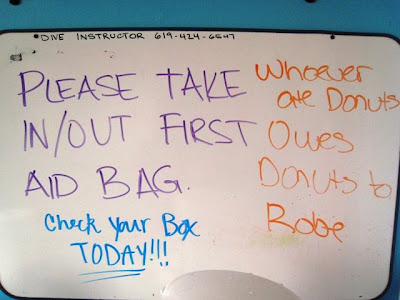 DIVE INSTRUCTOR 619-424-6547
PLEASE TAKE
IN/OUT FIRST
AID BAG.
Check Your Box
TODAY!!!
Whoever
ate Donuts
Owes
Donuts to